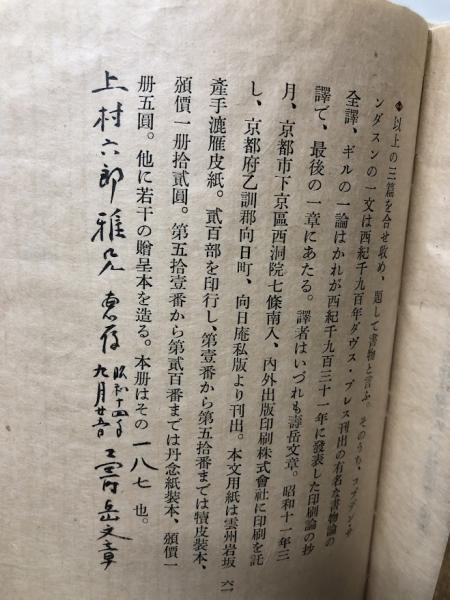 以上の三篇を合せ收め、題して書物と言ふ。そのうち、コブデン・サ
ンダスンの一文は西紀千九百年ダヴス・プレス刊出の有名な書物論の
全譯、ギルの一論はかれが西紀千九百三十一年に發表した印刷論の抄
譯で、最後の一章にあたる。譯者はいづれも壽岳文章。昭和十一年三
月、京都市下京區西洞院七條南入、內外出版印刷株式會社に印刷を託
し、京都府乙訓郡向日町、向日庵私版より刊出。本文用紙は雲州岩坂
產手漉雁皮紙。貳百部を印行し、第壹番から第五拾番までは犢皮裝本、
頒價一册拾貳圓。第五拾壹番から第貳百番までは丹念紙裝本、頒價一
册五圓。他に若干の贈呈本を造る。本册はその 一八七 也。
上村六郎雅兄 惠存 昭和十四年
九月廿 壽岳文章
六一